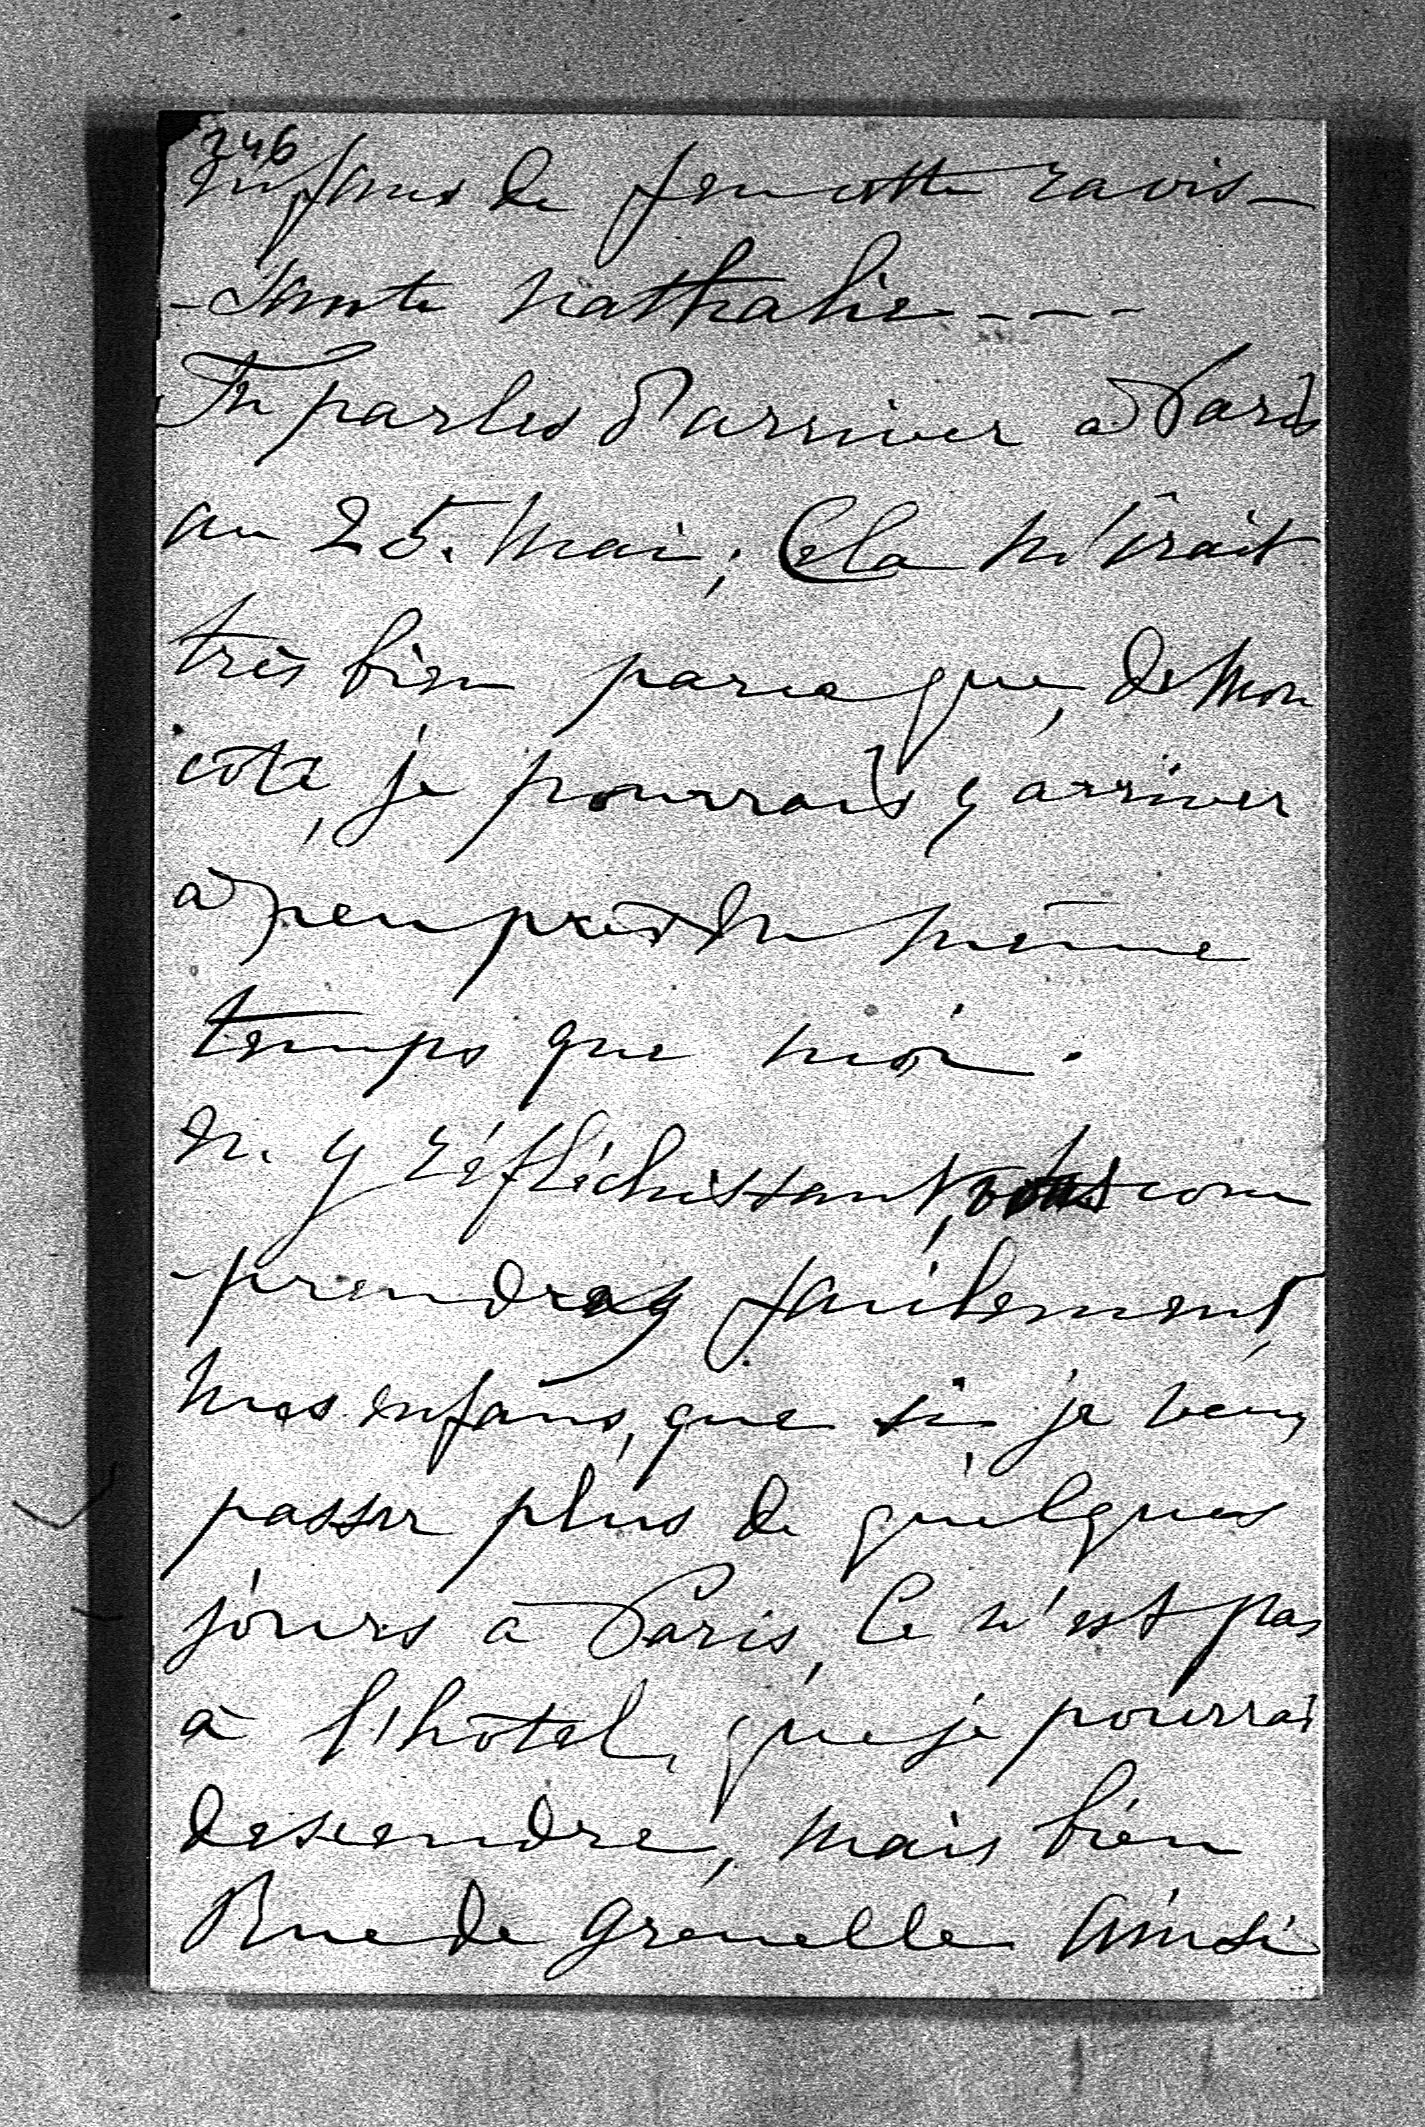 246
enfans de feu cette ravis-
-sante Nathalie - - -
Tu parles d'arriver à Paris
au 25. Mai; Cela m'irait
très bien parce que, de mon
côté, je pourrais y arriver
à peu près en même
temps que moi.
En y réfléchissant, vous com
-prendrez facilement,
mes enfans, que si je veux
passer plus de quelques
jours à Paris, Ce n'est pas
à l'hôtel, que je pourrai
descendre, mais bien
Rue de Grenelle ainsi